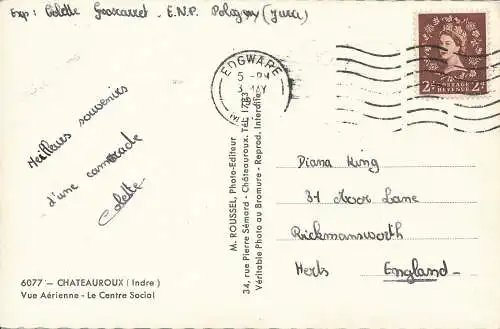 Exp: Colette Groscarret. E.N.P. Poligny (Jura)
EDGWARE
5 - PM
3 MAY
2D POSTAGE REVENUE 2D
Meilleurs souvenirs
d'une camarade
Colette
M. ROUSSEL, Photo-Editeur
34, rue Pierre Sémard - Châteauroux. Tél.
Véritable Photo au Bromure - Reprod. Interdite
Diana King
31 Moor Lane
Rickmansworth
Herts England
6077 - CHATEAUROUX (Indre)
Vue Aérienne - Le Centre Social